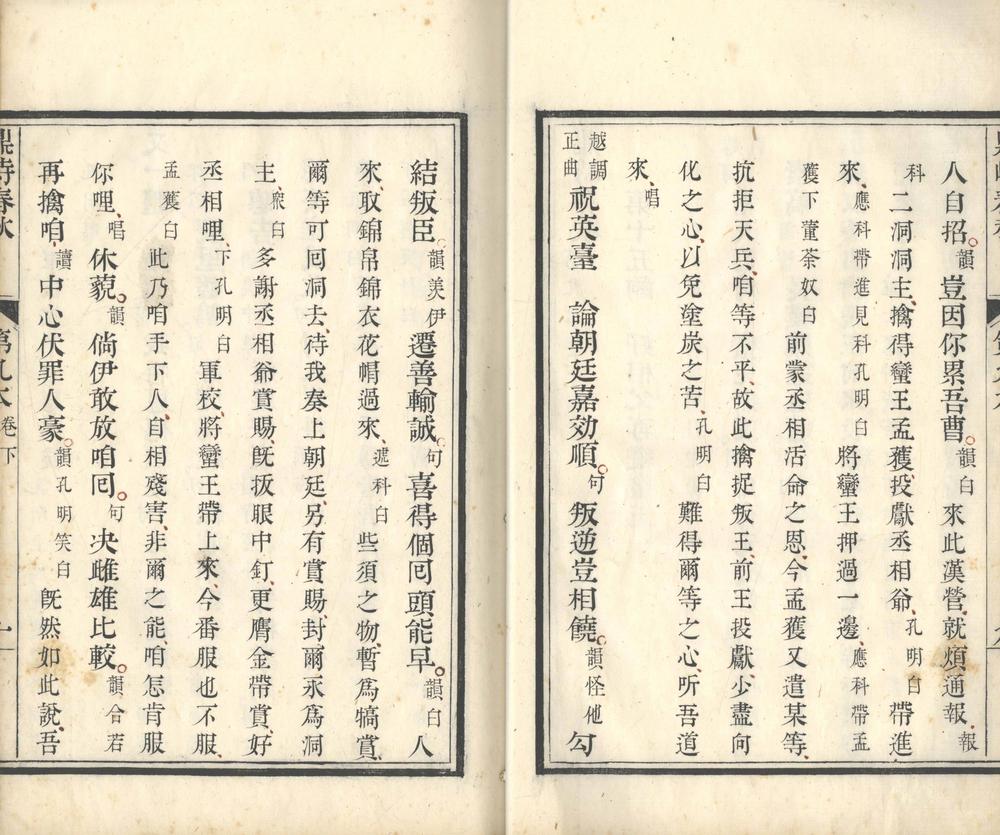 人自招韻豈因你累吾曹韻白來此漢營就煩通報報
科二洞洞主擒得蠻王孟獲投獻丞相爺孔明白帶進
來應科帶進見科孔明白將蠻王押過一邊應科帶孟
獲下董荼奴白前蒙丞相活命之恩今孟獲又遣某等
抗拒天兵咱等不平故此擒捉叛王前王投獻少盡向
化之心以免塗炭之苦孔明白難得爾等之心听吾道
來唱
越調正曲祝英臺論朝廷嘉効順句叛逆豈相饒韻怪他勾
結叛臣韻羙伊遷善輸誠句喜得個囘頭能早韻白人
來取錦帛錦衣花帽過來遞科白些須之物暫爲犒賞
爾等可囘洞去待我奏上朝廷另有賞賜封爾永爲洞
主衆白多謝丞相爺賞賜旣扳眼中釘更膺金帶賞好
丞相哩下孔明白軍校將蠻王帶上來今番服也不服
孟獲白此乃咱手下人自相殘害非爾之能咱怎肯服
你哩唱休藐韻倘伊敢放咱囘句决雌雄比較韻合若
再擒咱讀中心伏罪人豪韻孔明笑白旣然如此說吾
鼎峙春秋 第九本卷下